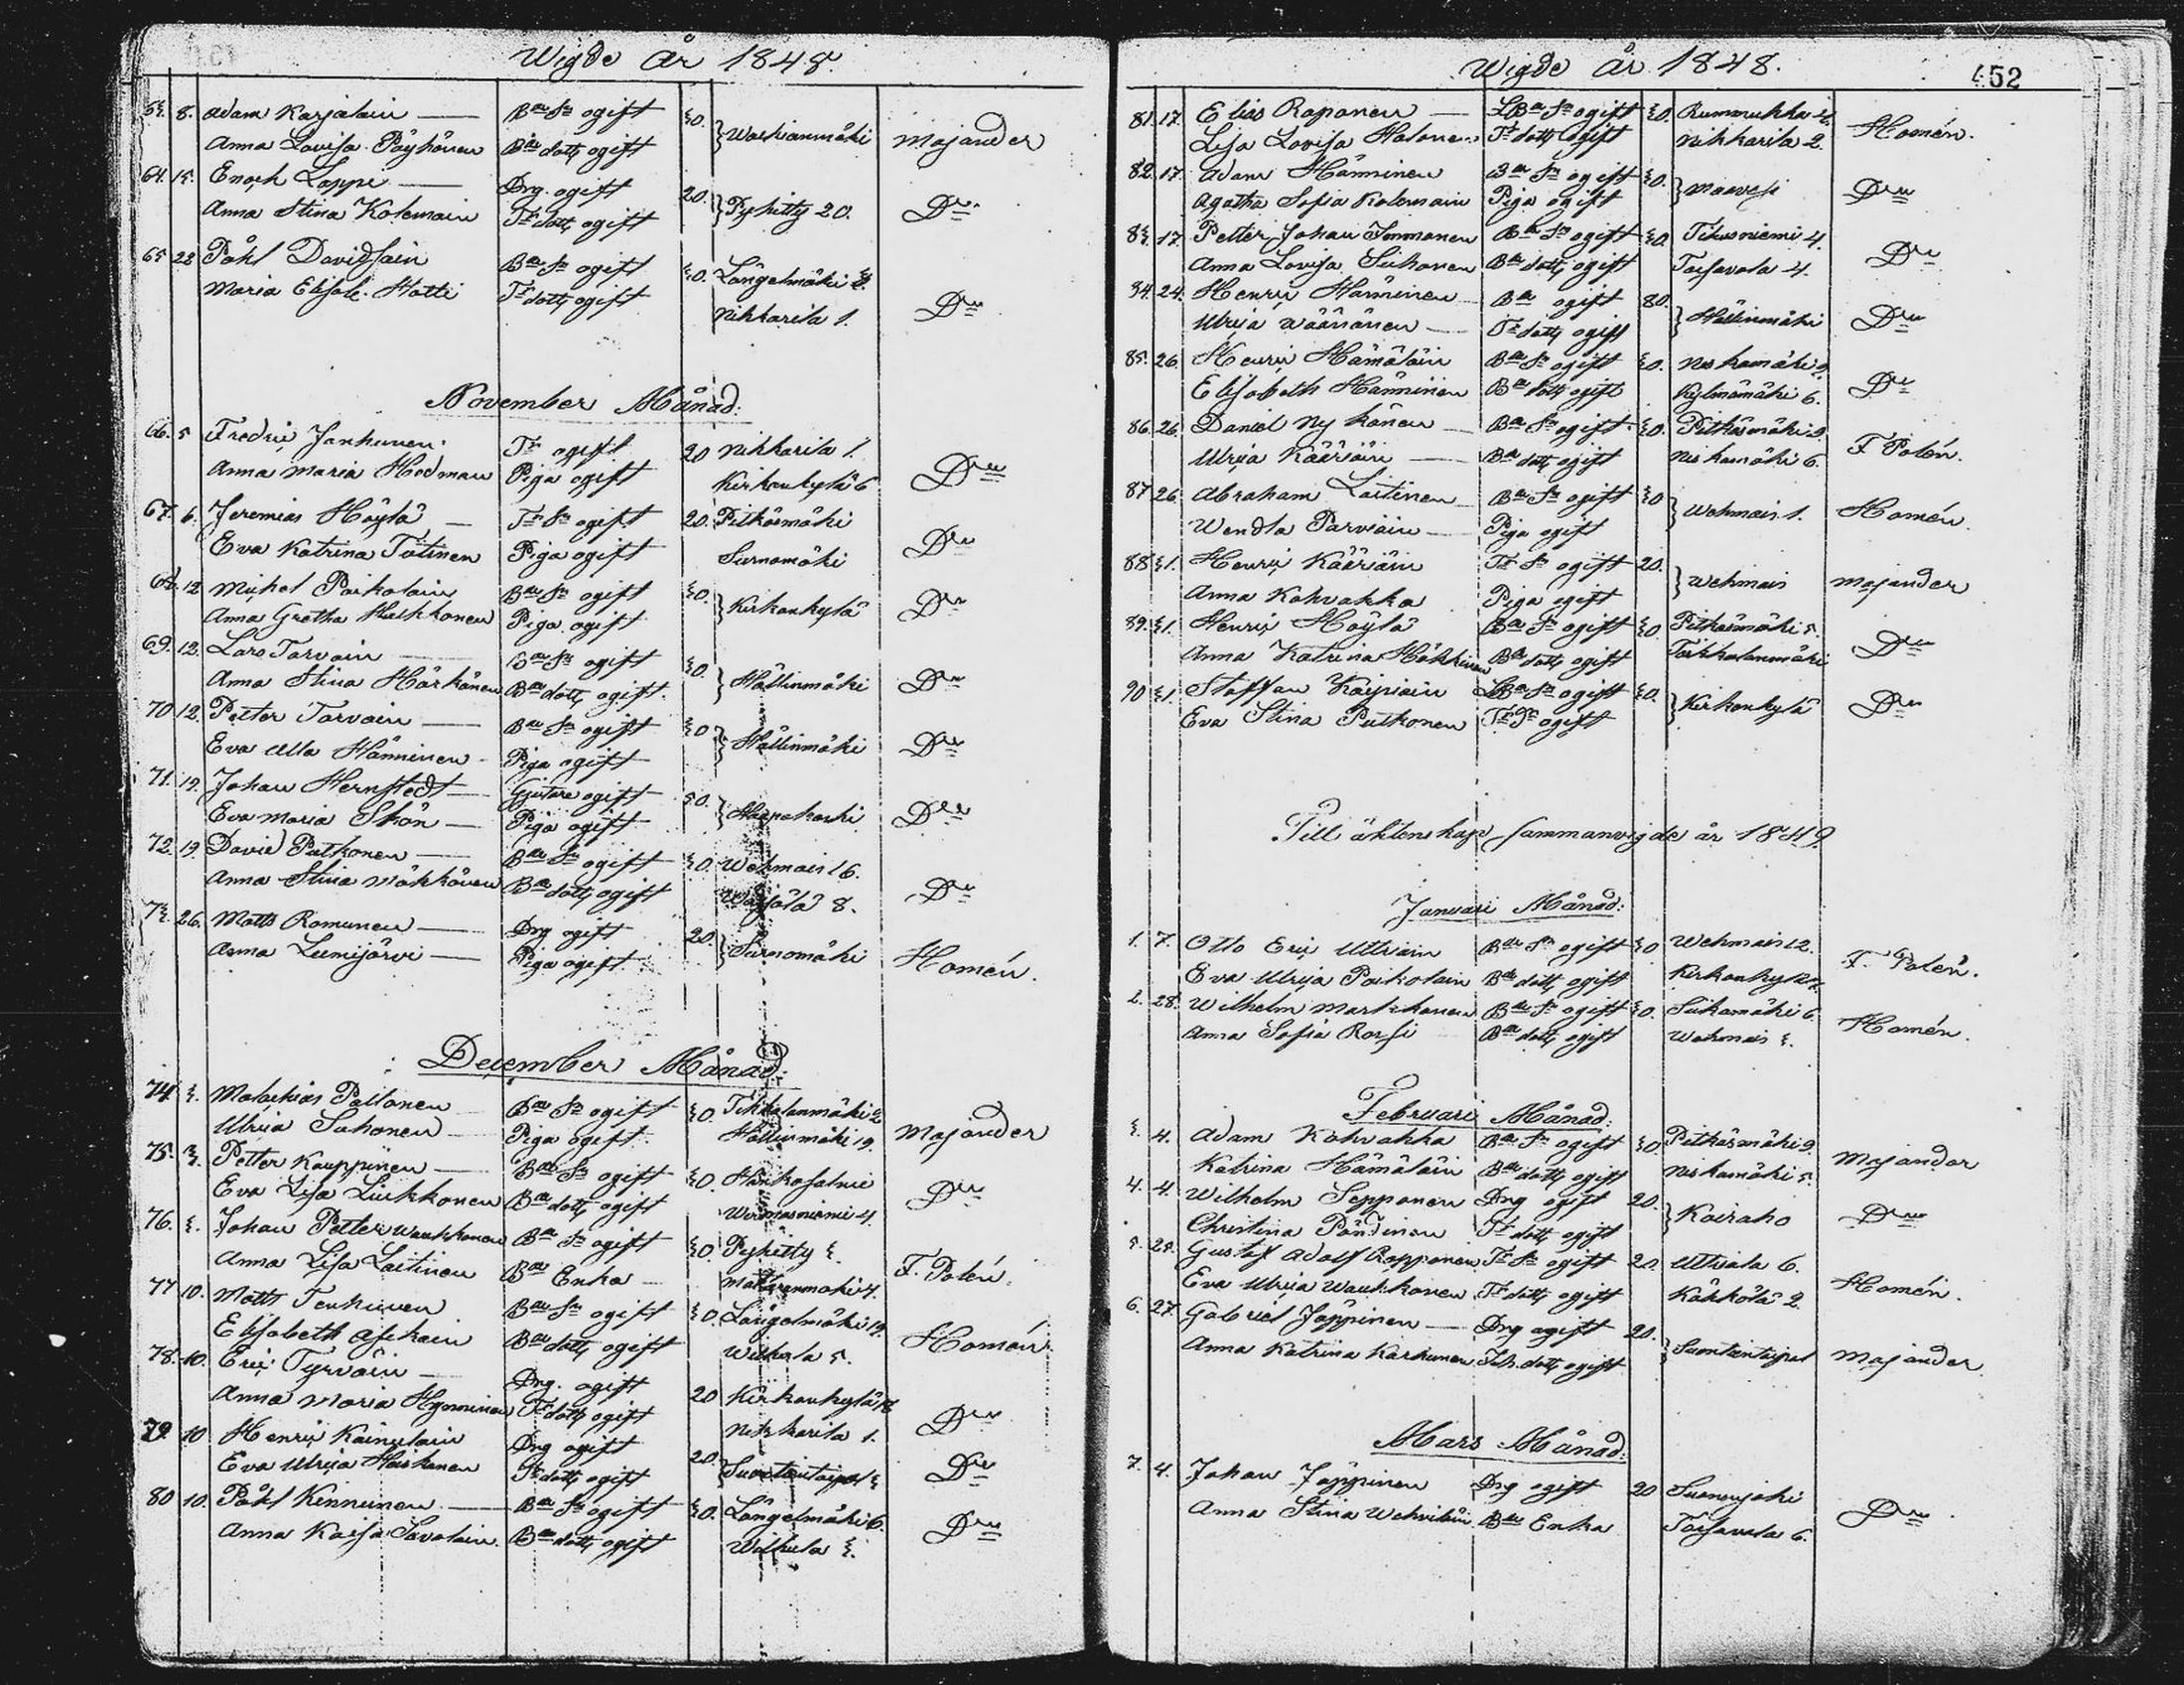 Wigde år 1848.
63. 8. Adam Karjalain — Bde Sn ogift 30. } Waskianmäki Majander
Anna Lovisa Pöyhönen Bde dottr ogift
64. 15. Enoch Lappi — Dng. ogift 20. } Pyhitty 20. Do
Anna Stina Kolemain Tr dottr ogift
65 22 Påhl Davidsain Bde Sn ogift 30. Längelmäki Do
Maria Elisab. Hatti Tr dottr ogift Nikkarila 1.
November Månad:
66. 5 Fredric Janhunen Tr ogift 20 Nikkarila 1. Do
Anna Maria Hodman Piga ogift Kirkonkylä 6
67. 6. Jeremias Höylä — Tr Sn ogift 20. Pitkämäki Do
Eva Katrina Tatinen Piga ogift Surnomäki
68. 12 Michel Paikolain Bde Sn ogift 30. } Kirkonkylä Do
Anna Gretha Hulkkonen Piga ogift
69. 12. Lars Tarvain — Bde Sn ogift 30. } Hällinmäki Do
Anna Stina Härkönen Bde dottr ogift
70 12. Petter Tarvain — Bde Sn ogift 30 } Hällinmäki Do
Eva Ulla Hänninen Piga ogift
71. 19. Johan Hernstedt — Gjutare ogift 50. } Haapakoski Do
Eva Maria Skön — Piga ogift
72. 19. David Putkonen — Bde Sn ogift 30. Wehmais 16. Do
Anna Stina Mökkönen Bde dottr ogift 8.
73. 26. Matts Romunen — Dng ogift 20. } Surnomäki Homén.
Anna Leemijärvi — Piga ogift
December Månad:
74 3. Malachias Paltonen Bde Sn ogift 30 Tikkalanmäki 2 Majander
Ulrica Suhonen — Piga ogift Hällinmäki 19.
75. 3. Petter Kauppinen — Bde Sn ogift 30. Do
Eva Lisa Liukkonen Bde dottr ogift Wirmasniemi 4.
76. 3. Johan Petter Waukkonen Bde Sn ogift 30 Pyhitty 3. F. Polén.
Anna Lisa Laitinen Bde Enka —
77 10. Matts Tenhunen Bde Sn ogift 30. Längelmäki 19. Homén
Elisabeth Asikain Bde dottr ogift Wilhula 5.
78. 10. Eric Tyrväin — Dng. ogift 20 Kirkonkylä 18 Do
Anna Maria Hynninen Tr dottr ogift Nikkarila 1.
79. 10 Henric Kainulain Dng ogift 20. Suontientaipal 3 Do
Eva Ulrica Heiskanen Tr dottr ogift
80 10. Påhl Kinnunen — Bde Sn ogift 30. Längelmäki 6. Do
Anna Kaisa Savolain. Bde dottr ogift Wilhula 3.
Wigde år 1848.
452
81. 17. Elias Raponen — LBde Sn ogift 30. Rummukka Homén.
Lisa Lovisa Halonen Tr dottr ogift Nikkarila 2.
82. 17. Adam Hänninen Bde Sn ogift 30. } Maavesi Do
Agatha Sofia Kolemain Piga ogift
83. 17. Petter Johan Immonen Bde Sn ogift 30. Tihusniemi 4. Do
Anna Lovisa Siikonen Bde dottr ogift Toisavala 4.
84. 24. Henric Hänninen Bde ogift 30. } Hällinmäki Do
Ulrica Wäänänen — Tr dottr ogift
85. 26. Henric Hämäläin Bde Sn ogift 30. Neskamäki 9. Do
Elisabeth Hänninen Bde dottr ogift Kylmämäki 6.
86. 26. Daniel Nykänen — Bde Sn ogift 30. Pitkämäki 9. F Polén.
Ulrica Kääriäin — Bde dottr ogift Neskamäki 6.
87 26. Abraham Laitinen Bde Sn ogift 30 } Wehmais 1. Homén.
Wendla Parviain — Piga ogift
88 31. Henric Kääriäin Tr Sn ogift 20. } Wehmais Majander
Anna Kohvakka Piga ogift
89. 31. Henric Höylä Bde Sn ogift 30. Pitkämäki 5. Do
Anna Katrina Häkkinen Bde dottr ogift Tikkalanmäki
90 31. Staffan Kaipiain LBde Sn ogift 30. } Kirkonkylä Do
Eva Stina Putkonen Tr Dr ogift
Till äktenskap sammanvigde år 1849
Januari Månad:
1. 7. Otto Eric Uttriain Bde Sn ogift 30 Wehmais 12. F. Polén.
Eva Ulrica Paikolain Bde dottr ogift Kirkonkylä
2. 28. Wilhelm Markkanen Bde Sn ogift 30. Siikamäki 6. Homén.
Anna Sofia Rossi Bde dottr ogift Wehmais 3.
Februari Månad:
3. 4. Adam Kohvakka Bde Sn ogift 30. Pitkämäki 9. Majander
Katrina Hämäläin Bde dottr ogift Neskamäki 5.
4. 4. Wilhelm Sepponen Dng ogift 20. } Koiraho Do
Christina Pöndinen Tr dottr ogift
5. 25. Gustaf Adolf Rapponen Tr Sn ogift 20. Uttriala 6. Homén.
Eva Ulrica Waukkonen Tr dottr ogift Käkkölä 2.
6. 27. Gabriel Jäppinen — Dng ogift 20. } Suontientaipal Majander
Anna Katrina Karhunen dottr ogift
Mars Månad:
7. 4. Johan Jäppinen Dng ogift 20 Suonenjoki Do
Anna Stina Wehviläin Bde Enka Toisavala 6.